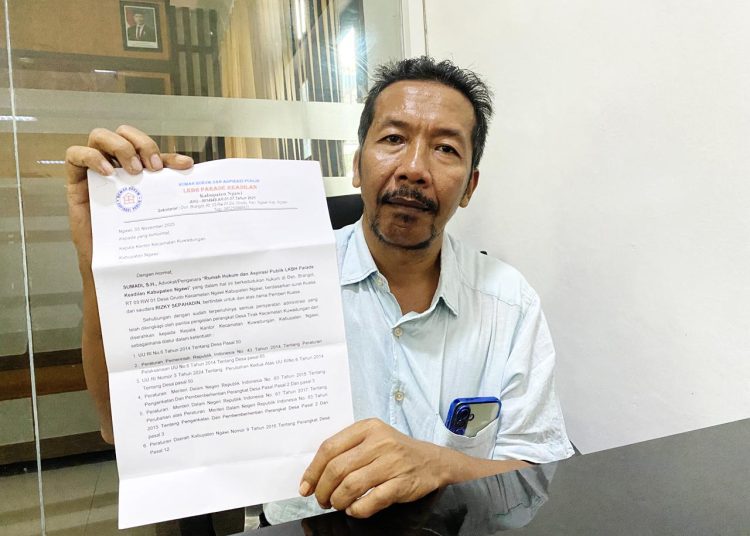 RUMAH HUKUM DAN ASPIRASI PUBLIK
LKBH PARADE KEADILAN
Kabupaten Ngawi
Ngawi, 05 November 2025
Kepada yang terhormat,
Kepala Kantor Kecamatan Kuwadungan
Dengan Hormat,
SUMADI, S.H., Advokat/Pengacara "Rumah Hukum dan Aspirasi Publik LKBH Parade
Keadilan Kabupaten Ngawi" yang dalam hal ini berkedudukan hukum di Dsn. Blangol,
RT 03 RW 01 Desa Grudo Kecamatan Ngawi Kabupaten Ngawi, berdasarkan surat Kuasa
dari saudara RIZKY SEPAHADIN, bertindak untuk dan atas nama Pemberi Kuasa.
Sehubungan dengan sudah terpenuhinya semua persyaratan administrasi yang
telah dilengkapi oleh panitia pengisian perangkat Desa Tirak Kecamatan Kuwadungan dan
diserahkan kepada Kepala Kantor Kecamatan Kuwadungan, Kabupaten Ngawi,
sebagaimana diatur dalam ketentuan :
1. UU RI No.6 Tahun 2014 Tentang Desa Pasal 50
2. Peraturan Pemerintah Republik Indonesia No. 43 Tahun 2014 Tentang
Pelaksanaan UU No.6 Tahun 2014 Tentang Desa pasal 65
3. UU RI Nomor 3 Tahun 2024 Tentang Perubahan Kedua Atas UU RI No.6 Tahun 2014
Tentang Desa pasal 50.
4. Peraturan Menteri Dalam Negeri Republik Indonesia No. 83 Tahun 2015 Tentang
Pengankatan Dan Pembenberhentian Perangkat Desa Pasal Pasal 2 Dan pasal 3
5. Peraturan Menteri Dalam Negeri Republik Indonesia No. 67 Tahun 2017 Tentang
Perubahan atas Peraturan Menteri Dalam Negeri Republik Indonesia No. 83 Tahun
2015 Tentang Pengankatan Dan Pembenberhentian Perangkat Desa Pasal 2 Dan
pasal 3
6. Peraturan Daerah Kabupaten Ngawi Nomor 9 Tahun 2016 Tentang Perangkat Desa
Pasal 12.